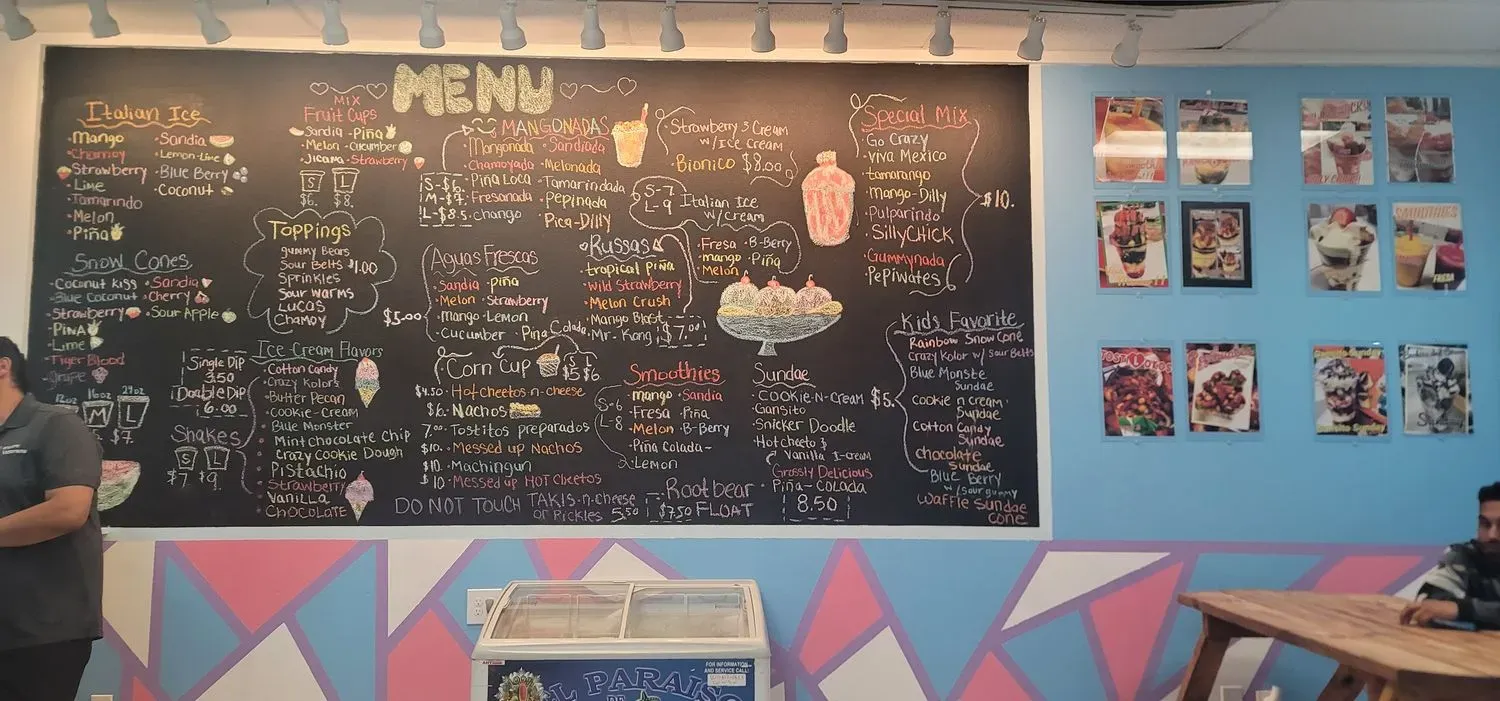 MENU
Italian Ice
• Mango
• Chamoy
• Strawberry
• Lime
• Tamarindo
• Melon
• Piña
• Sandia
• Lemon-Lime
• Blue Berry
• Coconut
Snow Cones
• Coconut Kiss
• Blue Coconut
• Strawberry
• PiNA
• Lime
• Tiger Blood
• Grape
• Sandia
• Cherry
• Sour Apple
12oz 16oz 24oz
M L
$7
MIX
Fruit Cups
Sandia • Piña
Melon • Cucumber
Jicama • Strawberry
S L
$6. $8.
Toppings
gummy Bears
Sour Belts $1.00
Sprinkles
Sour warms
LUCAS
Chamoy
Single Dip
3.50
Double Dip
6.00
Shakes
S L
$7 $9
Ice Cream Flavors
• Cotton Candy
• Crazy Kolors
• Butter Pecan
• COOKIE-Cream
• Blue Monster
• Mint chocolate Chip
• Crazy Cookie Dough
• Pistachio
• Strawberry
• Vanilla
• CHOCOLATE
MANGONADAS
Mangonada
Chamoyada
• Piña Loca
• Fresanada
• chango
• Sandiada
• Melonada
• Tamarindada
• Pepinada
• Pica-Dilly
S-$6.
M-$7.
L-$8.5.
Strawberry & Cream
w/Ice cream
Bionico $8.00
S-7
L-9
Italian Ice
w/cream
• Fresa • B-Berry
• mango • Piña
• Melon
Aguas Frescas
• Sandia • piña
• Melon • Strawberry
• Mango • Lemon
• Cucumber • Piña Colada
$5.00
Russas
tropical Piña
wild Strawberry
• Melon Crush
• Mango Blast
• Mr. Kong
$7.00
Corn Cup
S L
$5 $6
$4.50 • Hot cheetos-n-cheese
$6. • Nachos
7.00 • Tostitos preparados
$10. • Messed up Nachos
$10. • Machingun
$10 • Messed up HOT Cheetos
DO NOT TOUCH TAKIS-n-cheese
or Pickles 5.50
Smoothies
• mango • Sandia
• Fresa • Piña
• Melon • B-Berry
• Piña Colada
• Lemon
S-6
L-8
Root bear
$7.50 FLOAT
Sundae
• COOKiE-N-CREAM
Gansito
• Snicker Doodle
• Hotcheeto &
Vanilla I-cream
Grossly Delicious
• Piña-COLADA
8.50
Special Mix
• Go Crazy
• Viva Mexico
• tamarango
• Mango-Dilly
• Pulparindo
• SillyCHICK
• Gummynada
• Pepiwates
$10.
Kids Favorite
Rainbow Snow Cone
Crazy Kolor w/ Sour Belts
Blue Monste
Sundae
COOKIE n cream
Sundae
Cotton Candy
Sundae
chocolate
Sundae
Blue Berry
w/ sour gummy
Waffle Sundae
Cone
$5.
SMOOTHIES
FRESA
Gansito Sunday
FOR INFORMATION
AND SERVICE CALL:
EL PARAISO